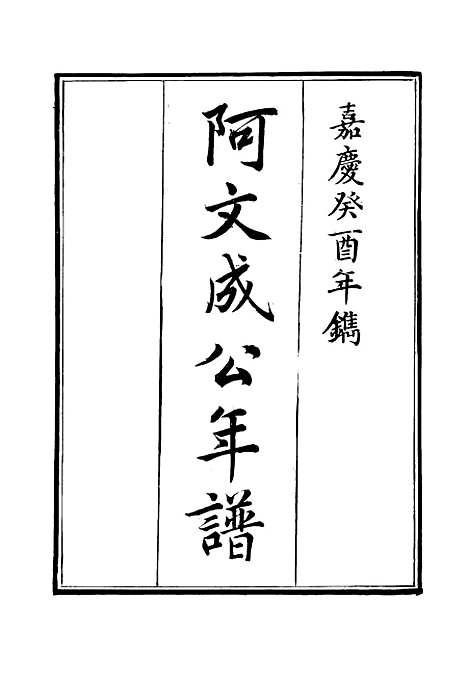 嘉慶癸酉年鐫
阿文成公年譜